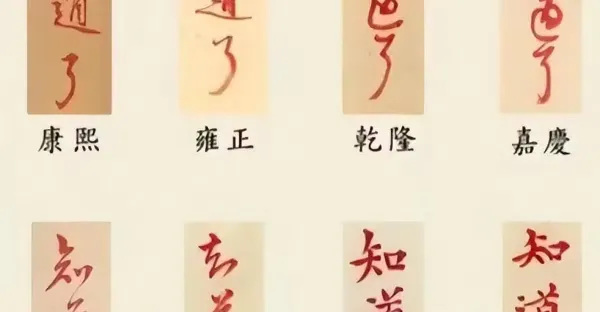 道 道 道 道
了 了 了 了
康熙 雍正 乾隆 嘉慶
知 知 知 知
道 道